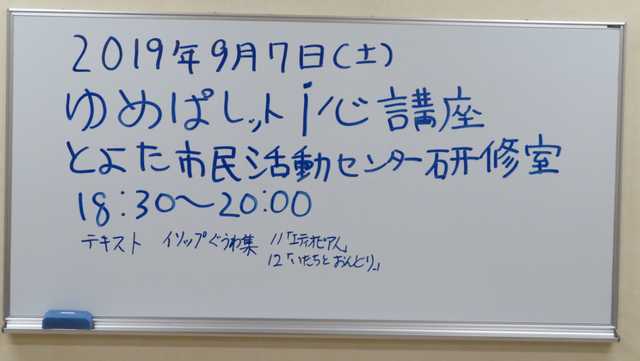 2019年9月7日(土)
ゆめぱれット i心 講座
とよた市民活動センター研修室
18:30〜20:00
テキスト イソップぐうわ集 11「エティオピア人」
12「いたちとおんどり」